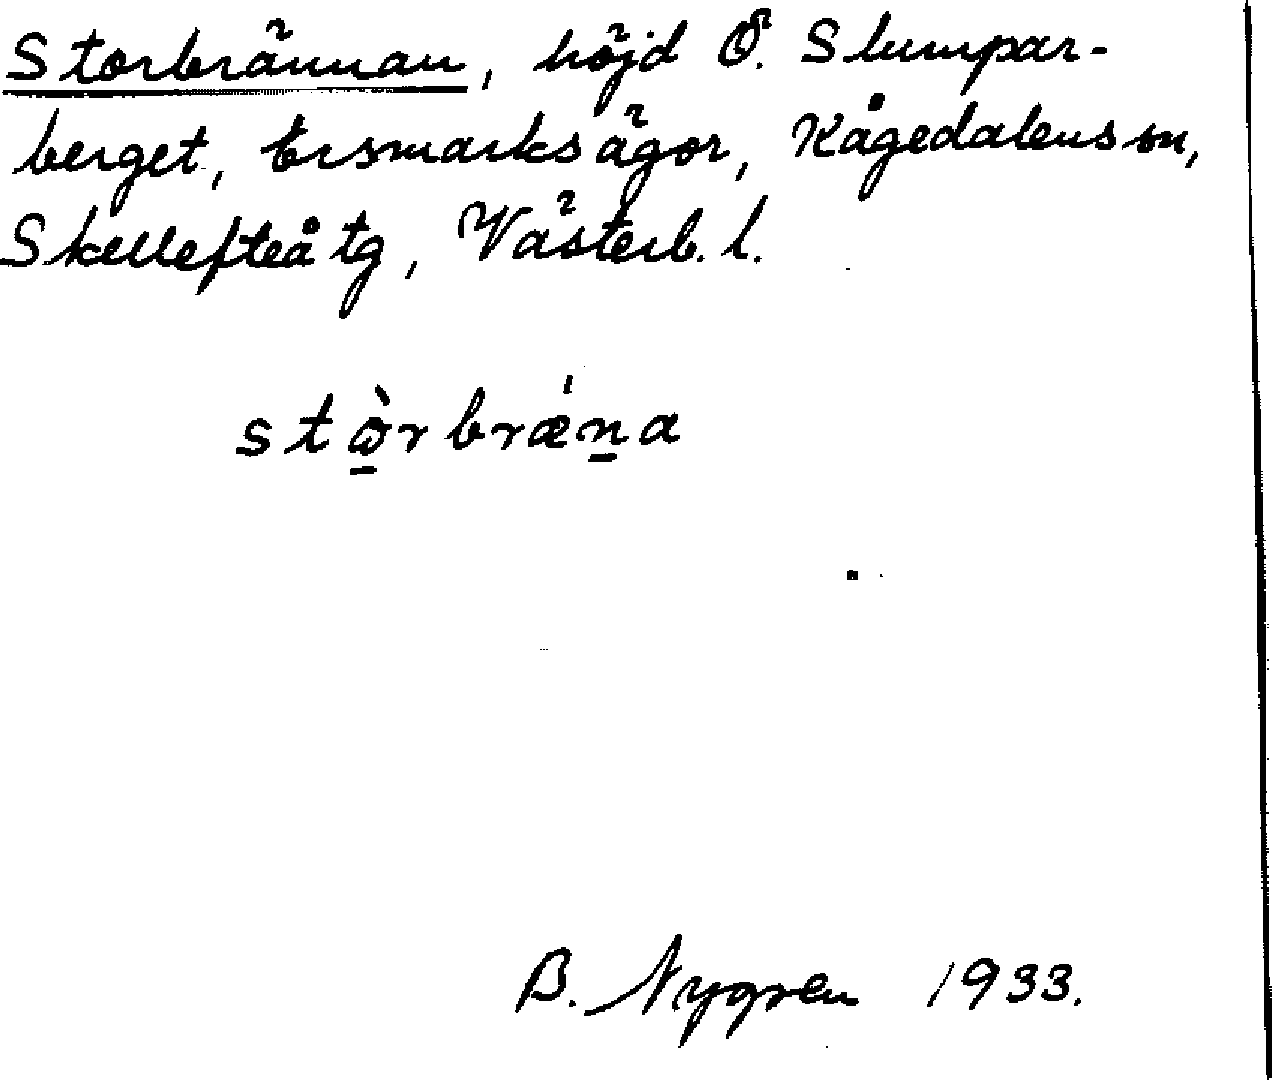 Storbrännan, höjd Ö. Slumpar-
berget, Ersmarks ägor, Kågedalens sn,
Skellefteå tg, Västerb. l.
stò̱rbrǽṉa
B. Nygren 1933.